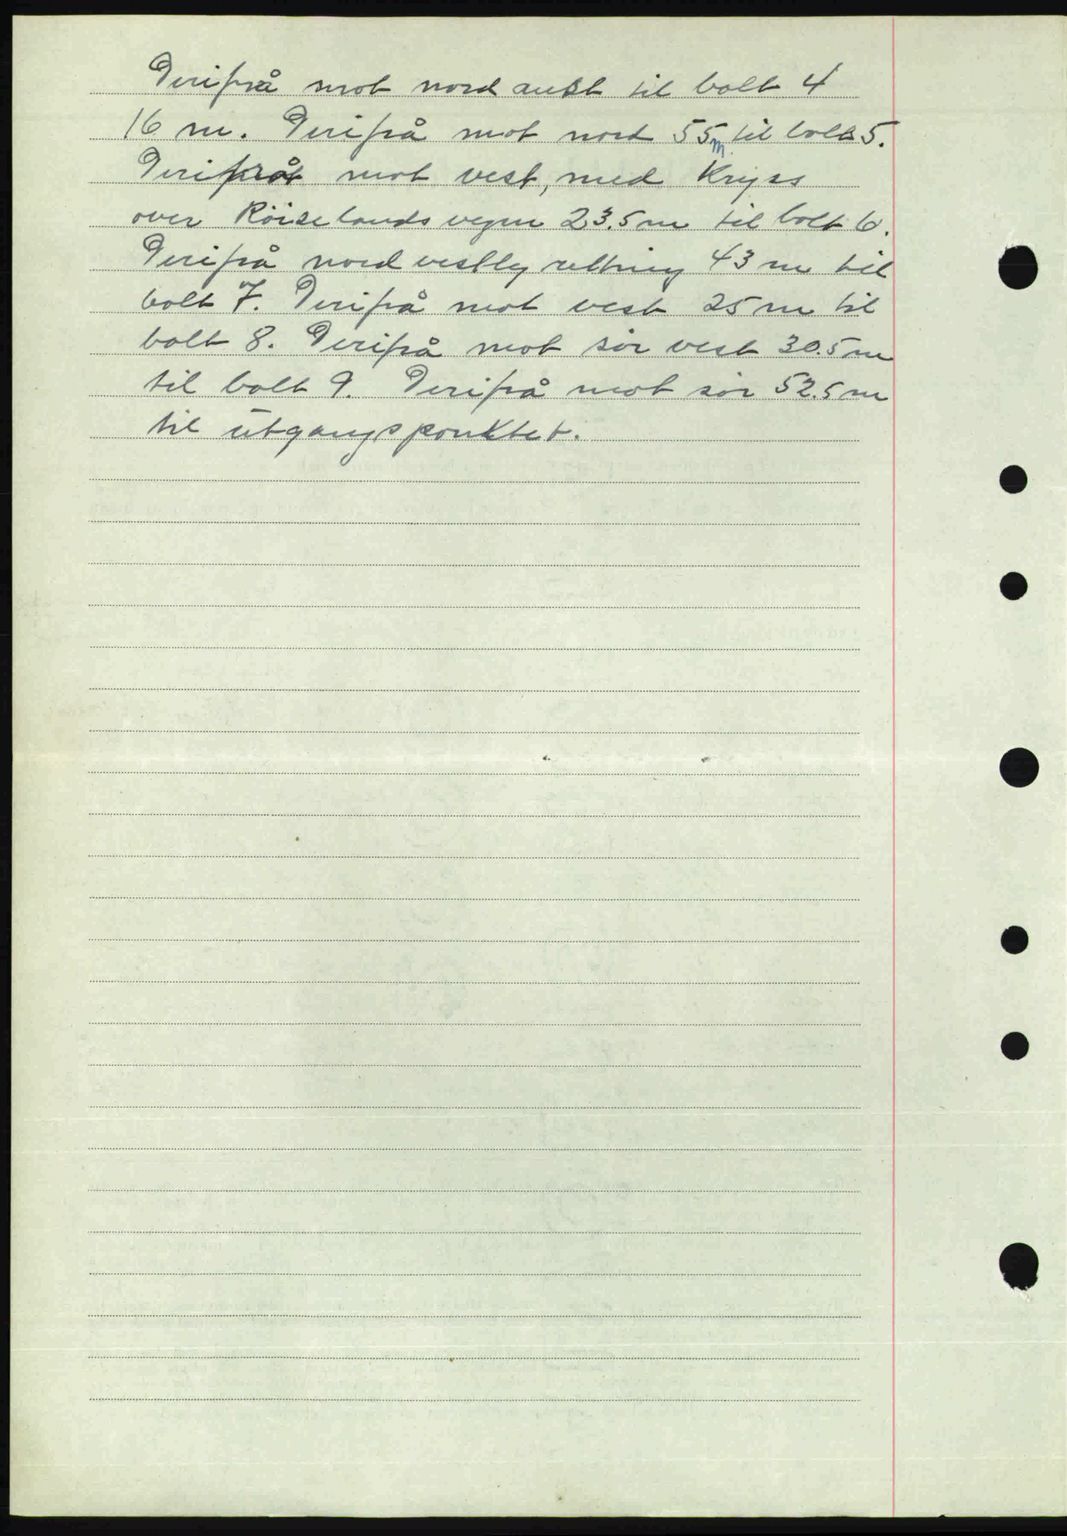 Derifrå mot nord aust til bolt 4
16 m. Derifrå mot nord 55 m til bolt 5.
Derifrå mot vest, med Kryss
over Röiselands vegen 23.5 m til bolt 6.
Derifrå nord vestleg retning 43 m til
bolt 7. Derifrå mot vest 25 m til
bolt 8. Derifrå mot sör vest 30.5 m
til bolt 9. Derifrå mot sör 52.5 m
til utgangspunktet.